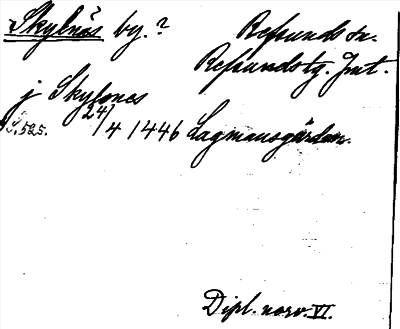 Skylnäs by.? Refsunds sn.
Refsunds tg. Jmt.
j Skyfones
S. 525. 24/4 1446 Lagmansgården.
Dipl. norv. VI.